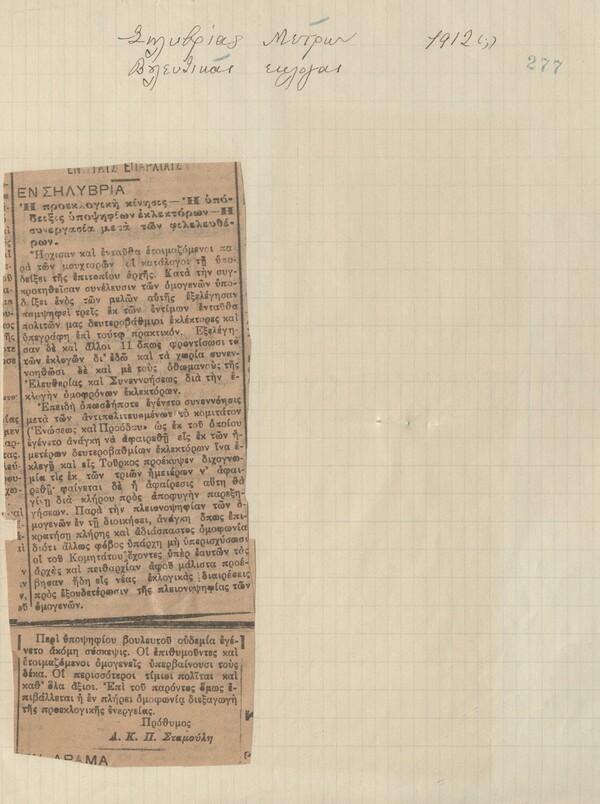 Σηλυβρίας Μέτρων 1912 (;)
Βουλευτικάς εκλογάς
277
ΕΝ ΤΑΙΣ ΕΠΑΡΧΙΑΙΣ
ΕΝ ΣΗΛΥΒΡΙΑ
Ἡ προεκλογικὴ κίνησις — Ἡ ὑπό-
δειξις ὑποψηφίων ἐκλεκτόρων — Ἡ
συνεργασία μετὰ τῶν φιλελευθέ-
ρων.
Ἤρχισαν καὶ ἐνταῦθα ἑτοιμαζόμενοι πα-
ρὰ τῶν μουχταρῶν οἱ κατάλογοι τῇ ὑπο-
δείξει τῆς ἐπιτοπίου ἀρχῆς. Κατὰ τὴν συγ-
κροτηθεῖσαν συνέλευσιν τῶν ὁμογενῶν ὑπο-
δείξει ἑνὸς τῶν μελῶν αὐτῆς ἐξελέγησαν
παμψηφεὶ τρεῖς ἐκ τῶν ἐντίμων ἐνταῦθα
πολιτῶν μας δευτεροβάθμιοι ἐκλέκτορες καὶ
ὑπεγράφη ἐπὶ τούτῳ πρακτικόν. Ἐξελέγη-
σαν δὲ καὶ ἄλλοι 11 ὅπως φροντίσωσι τὰ
τῶν ἐκλογῶν δι' ἐδῶ καὶ τὰ χωρία συνεν-
νοηθῶσι δὲ καὶ μὲ τοὺς ὀθωμανοὺς τῆς
Ἐλευθερίας καὶ Συνεννοήσεως διὰ τὴν ἐ-
κλογὴν ὁμοφρόνων ἐκλεκτόρων.
Ἐπειδὴ ὁπωσδήποτε ἐγένετο συνεννόησις
μετὰ τῶν ἀντιπολιτευομένων τὸ κομιτᾶτον
(Ἑνώσεως καὶ Προόδου) ὡς ἐκ τοῦ ὁποίου
ἐγένετο ἀνάγκη νὰ ἀφαιρεθῇ εἷς ἐκ τῶν ἡ-
μετέρων δευτεροβαθμίων ἐκλεκτόρων ἵνα ἐ-
κλεγῇ καὶ εἷς Τοῦρκος προέκυψεν διχογνω-
μία τίς ἐκ τῶν τριῶν ἡμετέρων ν' ἀφαι-
ρεθῇ· φαίνεται δὲ ἡ ἀφαίρεσις αὕτη θὰ
γίνῃ διὰ κλήρου πρὸς ἀποφυγὴν παρεξη-
γήσεων. Παρὰ τὴν πλειονψηφίαν τῶν ὁ-
μογενῶν ἐν τῇ διοικήσει, ἀνάγκη ὅπως ἐπι-
κρατήσῃ πλήρης καὶ ἀδιάσπαστος ὁμοφωνία
διότι ἄλλως φόβος ὑπάρχη μὴ ὑπερισχύσωσι
οἱ τοῦ Κομητάτου ἔχοντες ὑπὲρ ἑαυτῶν τὰς
ἀρχὰς καὶ πειθαρχίαν ἀφοῦ μάλιστα προέ-
βησαν ἤδη εἰς νέας ἐκλογικὰς διαιρέσεις
πρὸς ἐξουδετέρωσιν τῆς πλειονψηφίας τῶν
ὁμογενῶν.
Περὶ ὑποψηφίου βουλευτοῦ οὐδεμία ἐγέ-
νετο ἀκόμη σύσκεψις. Οἱ ἐπιθυμοῦντες καὶ
ἑτοιμαζόμενοι ὁμογενεῖς ὑπερβαίνουσι τοὺς
δέκα. Οἱ περισσότεροι τίμιοι πολῖται καὶ
καθ' ὅλα ἄξιοι. Ἐπὶ τοῦ παρόντος ὅμως ἐ-
πιβάλλεται ἡ ἐν πλήρει ὁμοφωνίᾳ διεξαγωγὴ
τῆς προεκλογικῆς ἐνεργείας.
Πρόθυμος
Α. Κ. Π. Σταμούλη
ΕΝ ΔΡΑΜΑ